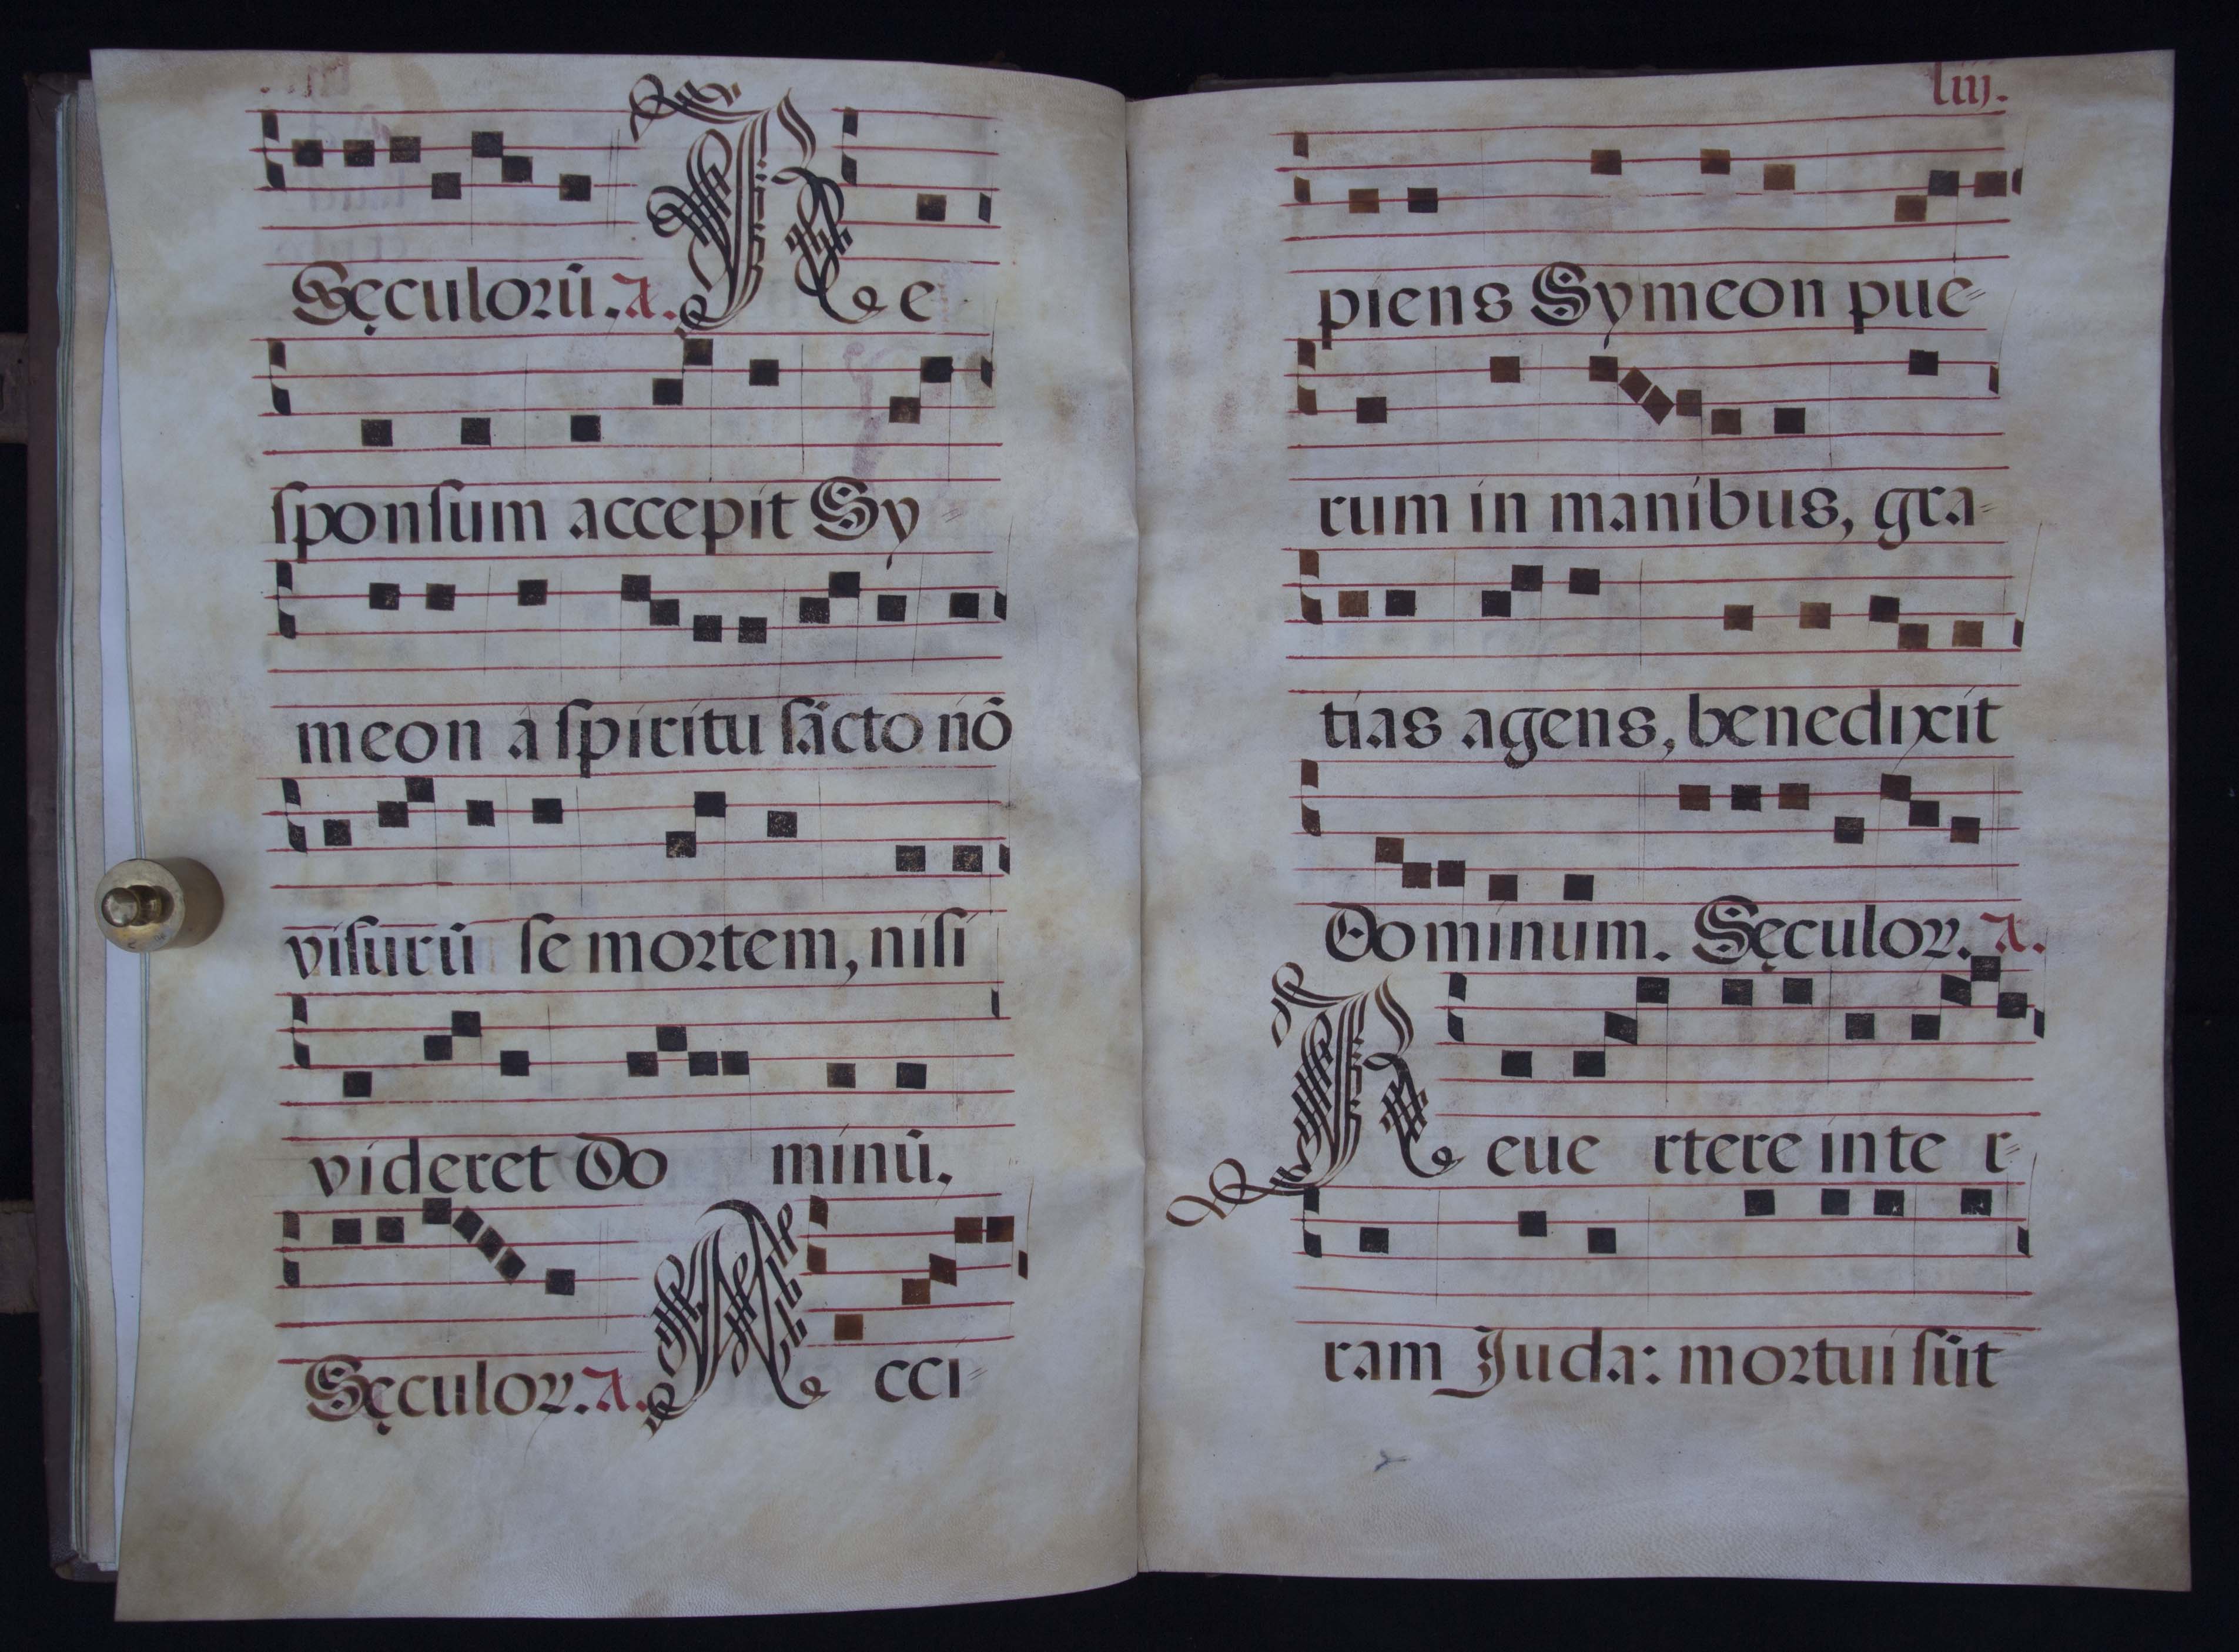 Sęculorū. A. Re
ſponſum accepit Sy-
meon a ſpiritu ſācto nō
viſurū ſe mortem, niſi
videret Do minū.
Sęculoꝝ. A. Acci-
liij.
piens Symeon pue-
rum in manibus, gra-
tias agens, benedixit
Dominum. Sęculoꝝ. A.
Reue rtere in te r-
ram Juda: mortui ſūt